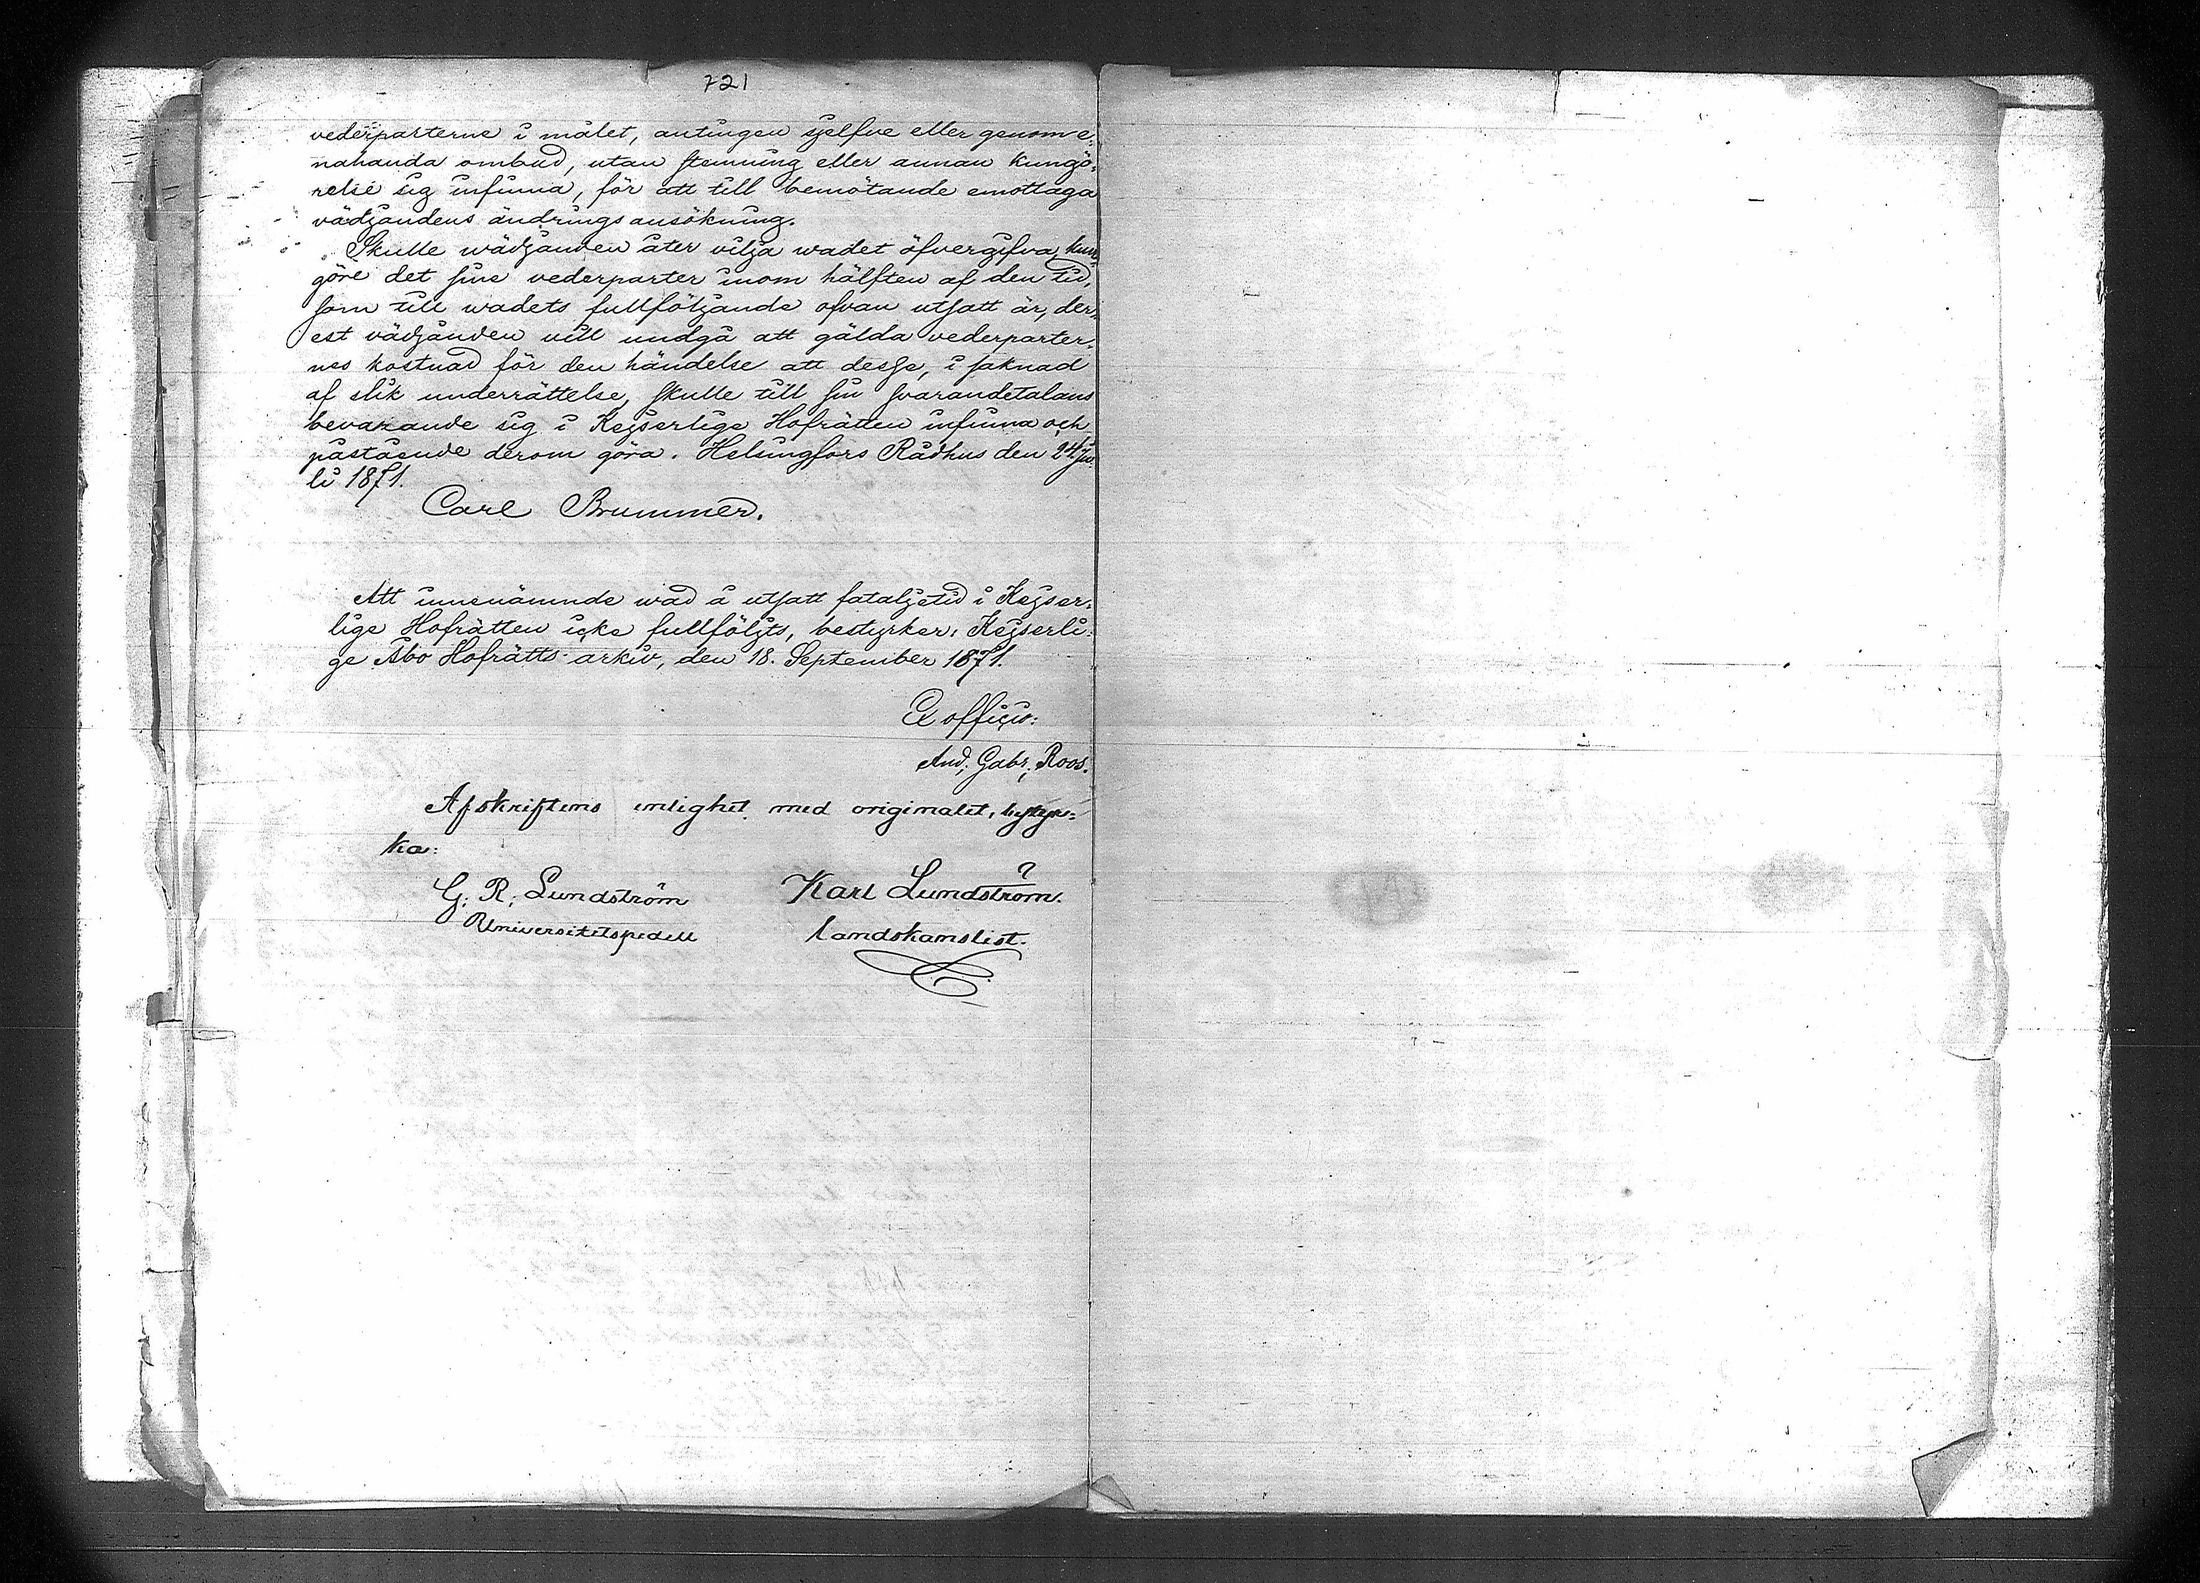 721
vederparterne i målet, antingen sjelfve eller genom e-
nahanda ombud, utan stemning eller annan kungö-
relse sig infinna, för att till bemötande emottaga
vädjandens ändringsansökning.
Skulle wädjanden åter vilja wadet öfvergifva, kun-
göre det sine vederparter inom hälften af den tid,
som till wadets fullföljande ofvan utsatt är, der-
est vädjanden vill undgå att gälda vederparter-
nes kostnad för den händelse att desse, i saknad
af slik underrättelse, skulle till sin svarandetalans
bevarande sig i Kejserlige Hofrätten infinna och
påstående derom göra. Helsingfors Rådhus den 24 Ju-
li 1871.
Carl Brummer.
Att innenämnde wad å utsatt fataljetid i Kejser-
lige Hofrätten icke fullföljts, bestyrker, Kejserli-
ge Åbo Hofrätts arkiv, den 18. September 1871.
Ex officio:
And. Gabr. Roos.
Afskriftens enlighet med originalet, bestyr-
ka:
G. R. Lundström Karl Lundström.
Universitetspedell Landskanslist.